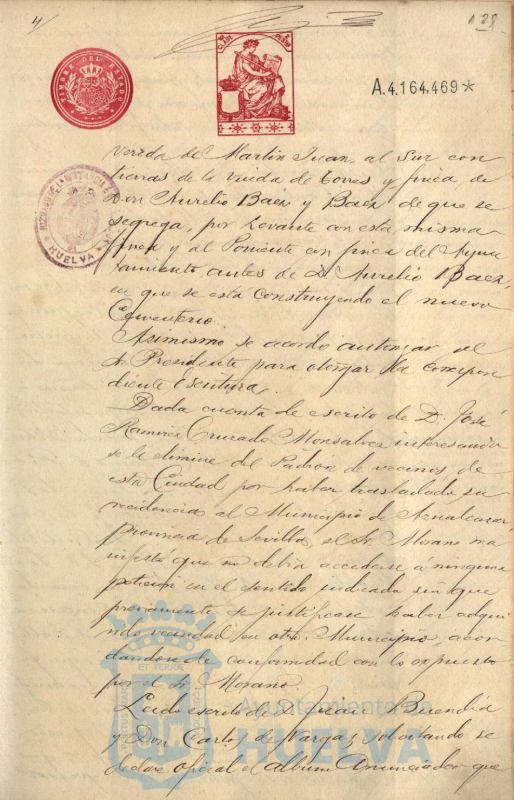 4/
138
TIMBRE DEL ESTADO
CLASE
A.4.164.469*
HUELVA
vereda de Martin Juan al Sur con
tierras de la viuda de Torres y finca de
Don Aurelio Báez y Báez de que se
segrega, por Levante con esta misma
finca y al Poniente con finca del Ayun
tamiento antes de D. Aurelio Báez,
en que se está construyendo el nuevo
Cementerio.
Asimismo se acordó autorizar al
Sr. Presidente para otorgar la correspon
diente Escritura.
Dada cuenta de escrito de D. José
Ramirez Cruzado Monsalvez interesando
se le elimine del Padrón de vecinos de
esta Ciudad por haber trasladado su
residencia al Municipio de Aznalcazar,
provincia de Sevilla, el Sr. Morano ma
nifestó que no debía accederse a ninguna
petición en el sentido indicado sin que
previamente se justificase haber adqui
rido vecindad en otro Municipio, acor
dandose de conformidad con lo expuesto
por el Sr. Morano.
Leido escrito de D. Juan Buendía
y Don Carlos de Vargas solicitando se
declare oficial el Album Anunciador que
Ayuntamiento de
HUELVA